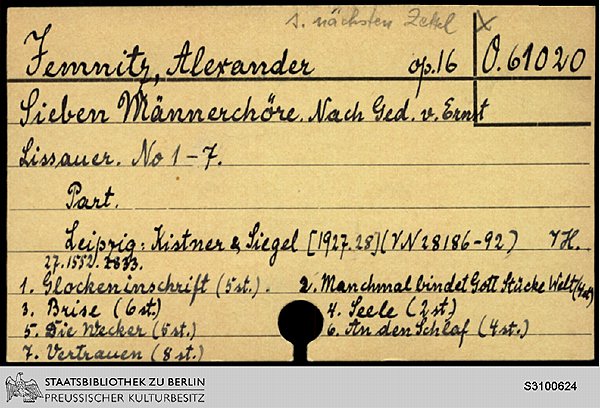 s. nächsten Zettel X
Jemnitz, Alexander op.16 O.61020
Sieben Männerchöre. Nach Ged. v. Ernst
Lissauer. No 1-7.
Part.
Leipzig: Kistner & Siegel [1927.28] (VN 28186-92) 7 H.
27.1552. 1833.
1. Glockeninschrift (5st.). 2. Manchmal bindet Gott Stücke Welt (4st.)
3. Brise (6st.) 4. Seele (2st.)
5. Die Wecker (5st.) 6. An den Schlaf (4st.)
7. Vertrauen (8st.)
STAATSBIBLIOTHEK ZU BERLIN
PREUSSISCHER KULTURBESITZ
S3100624